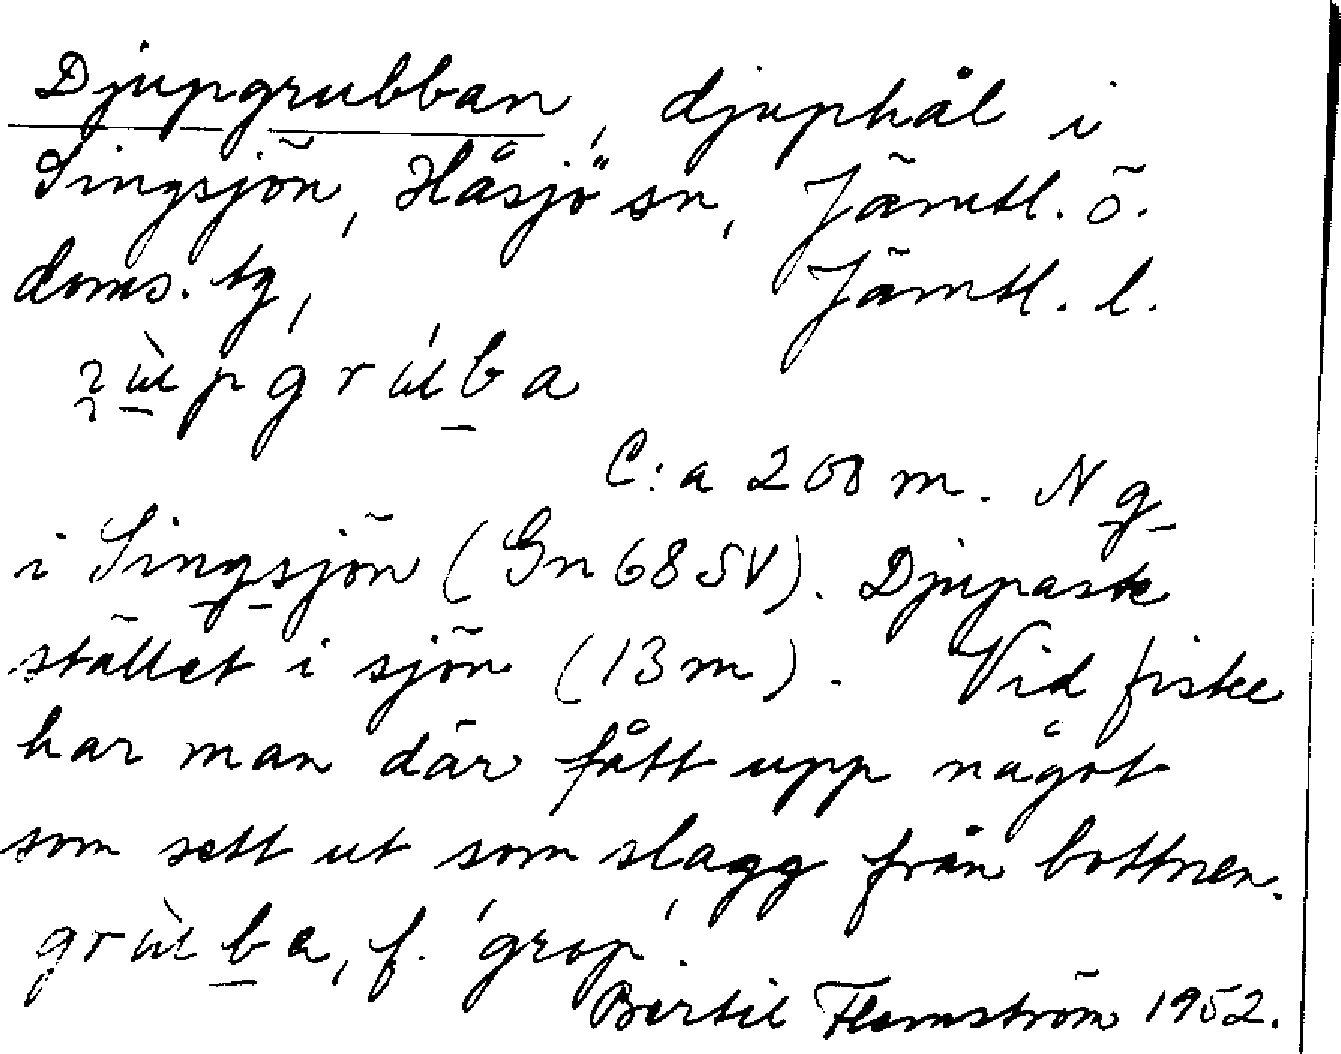 Djupgrubban, djuphål i
Singsjön, Håsjö sn, Jämtl. ö.
doms. tg, Jämtl. l.
C:a 200 m. N g
i Singsjön (Gn 68 SV). Djupaste
stället i sjön (13 m). Vid fiske
har man där fått upp något
som sett ut som slagg från bottnen.
f. 'grop'.
Bertil Flemström 1952.